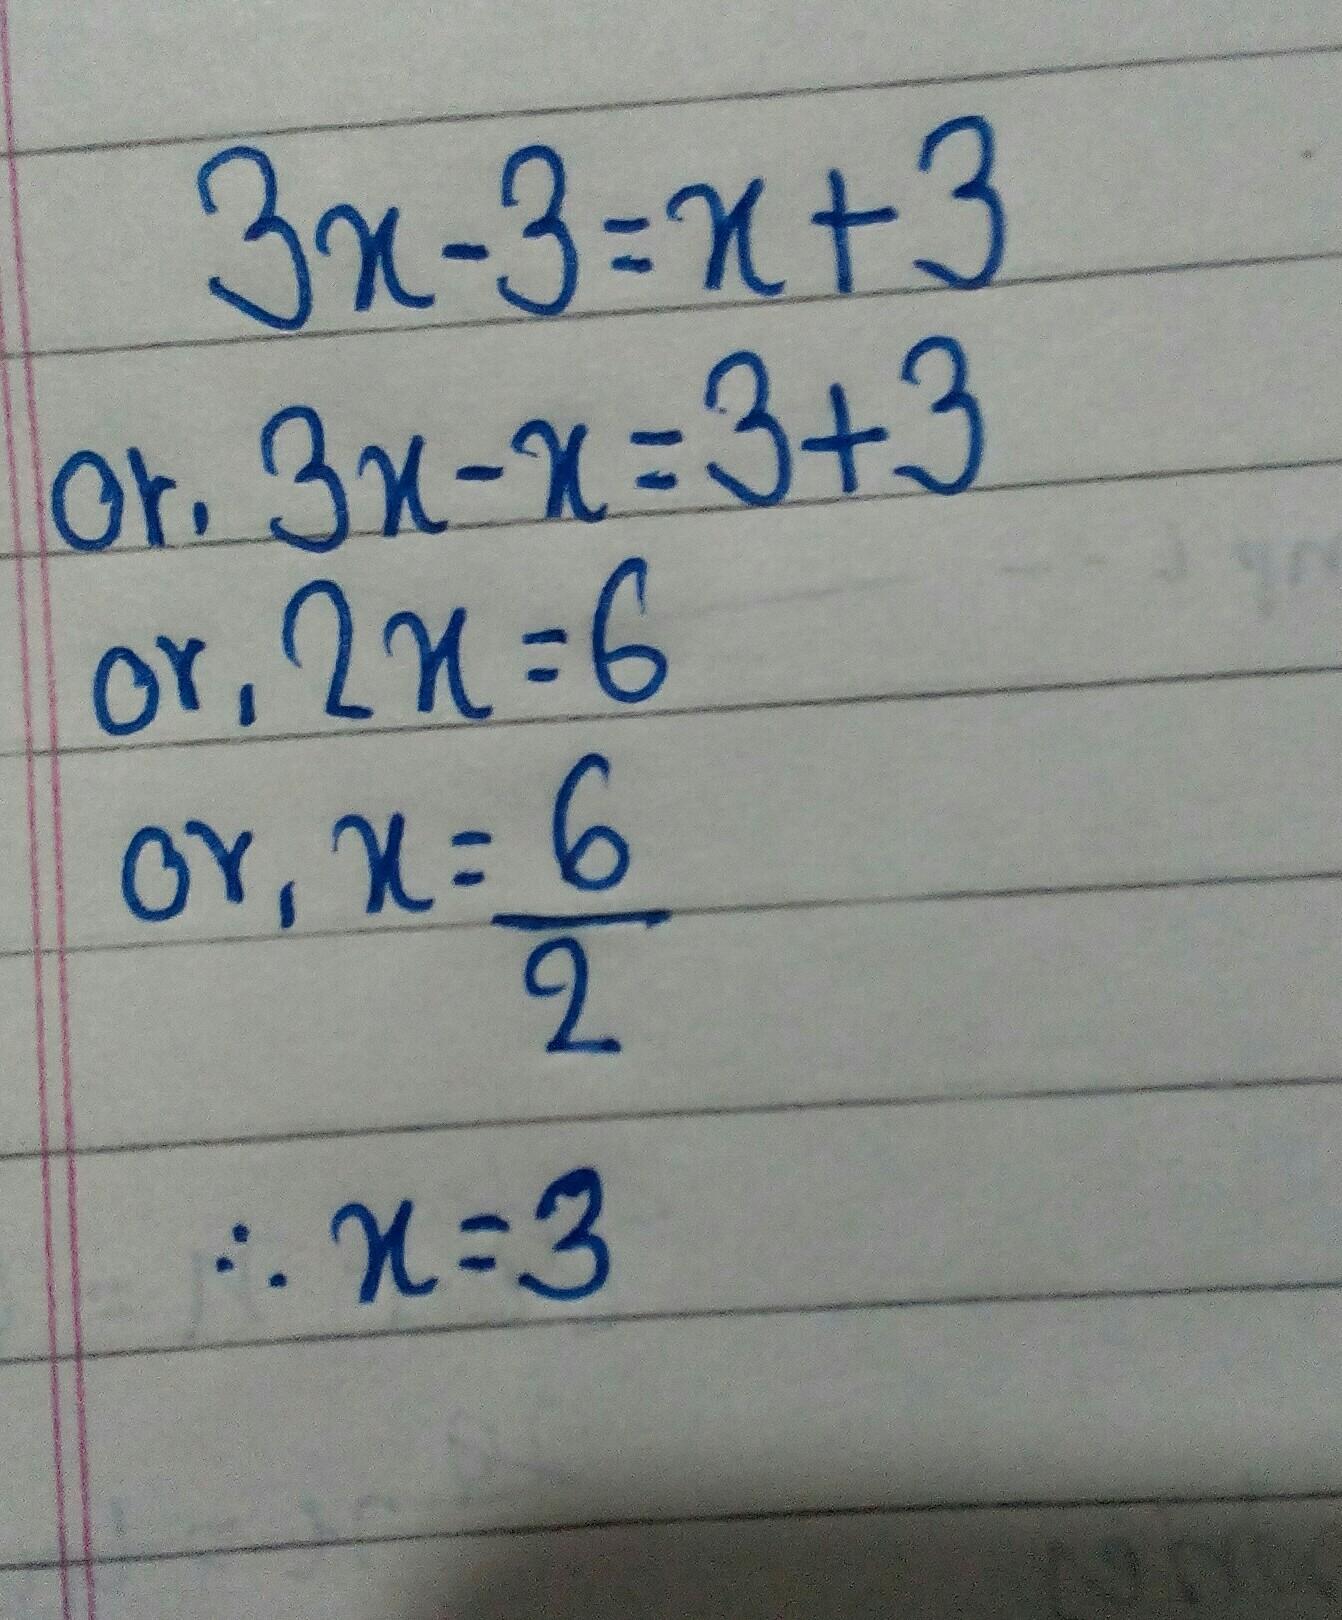 3x-3=x+3
or, 3x-x=3+3
or, 2x=6
or, x=6/2
∴ x=3